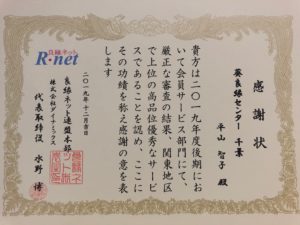 感謝状
葵良縁センター 千葉
平山 智子 殿
貴方は二〇一九年度後期にお
いて会員サービス部門にて、
厳正な審査の結果、関東地区
で上位の高品位優秀なサービ
スであることを認め、ここに
その功績を称え感謝の意を表
します
二〇一九年十二月吉日
良縁ネット連盟本部
株式会社ダイナミックス
代表取締役 水野 博
良縁ネット
R·net